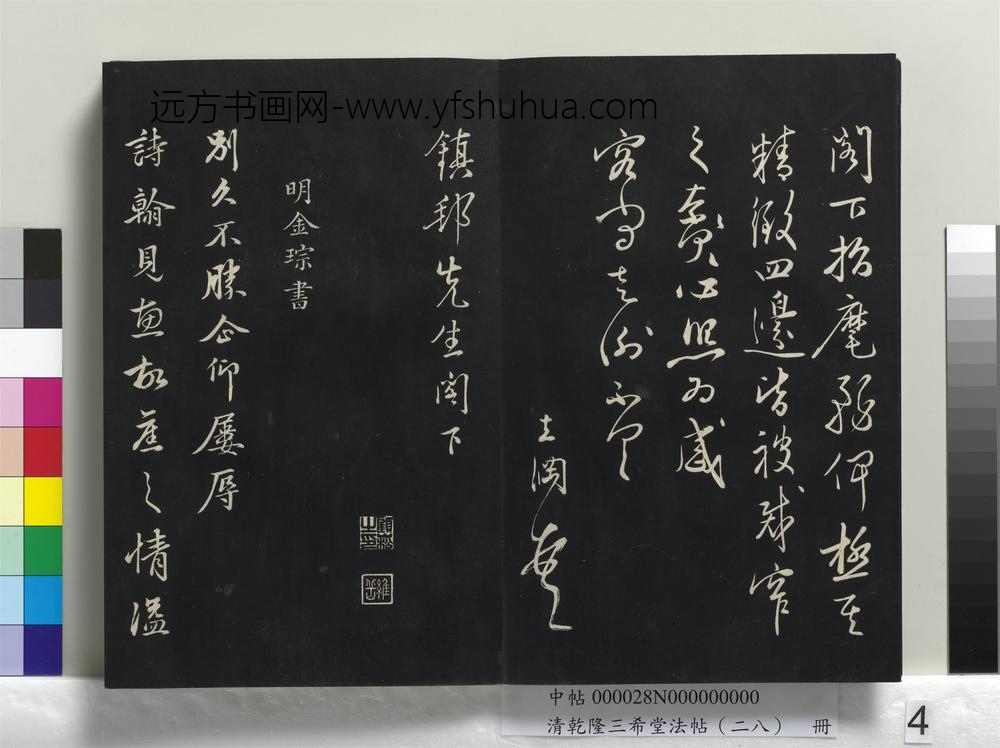 远方书画网-www.yfshuhua.com
閣下指麾務俾極其
精緻四邊皆被裁窄
之心照為感
容當走謝不
鎮邦先生閣下
明金琮書
別久不勝企仰屢辱
詩翰見惠故舊之情溢
中帖 000028N000000000
清乾隆三希堂法帖（二八） 冊
4